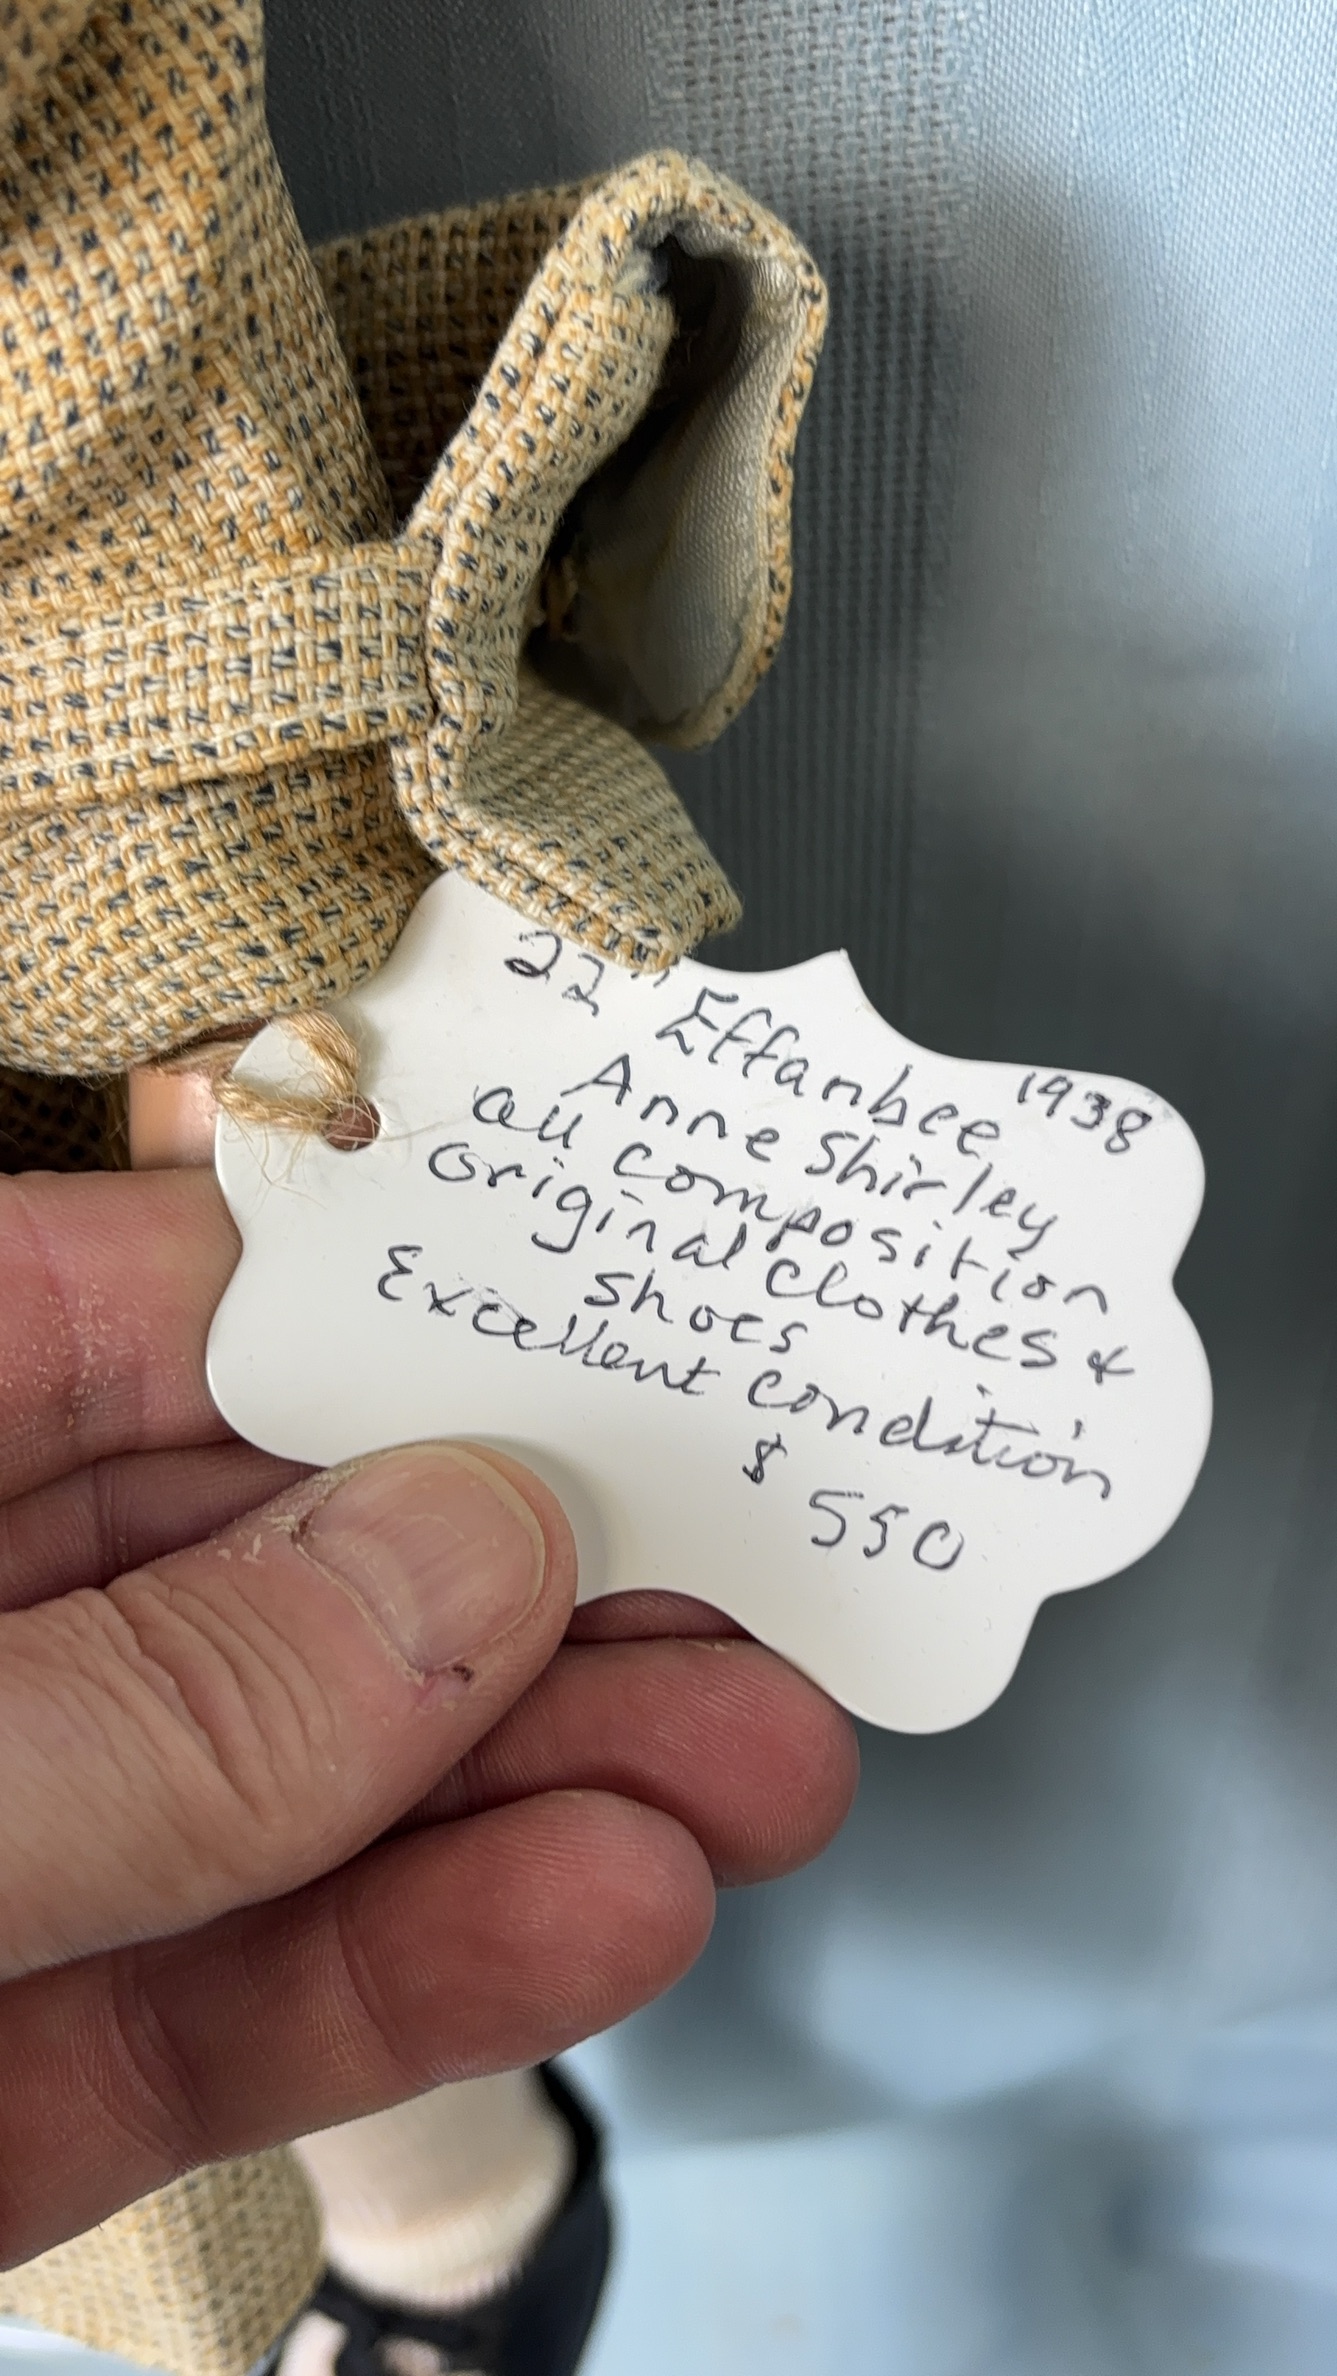 22" Effanbee 1938
Anne Shirley
all composition
Original Clothes &
Shoes
Excellent condition
$ 550